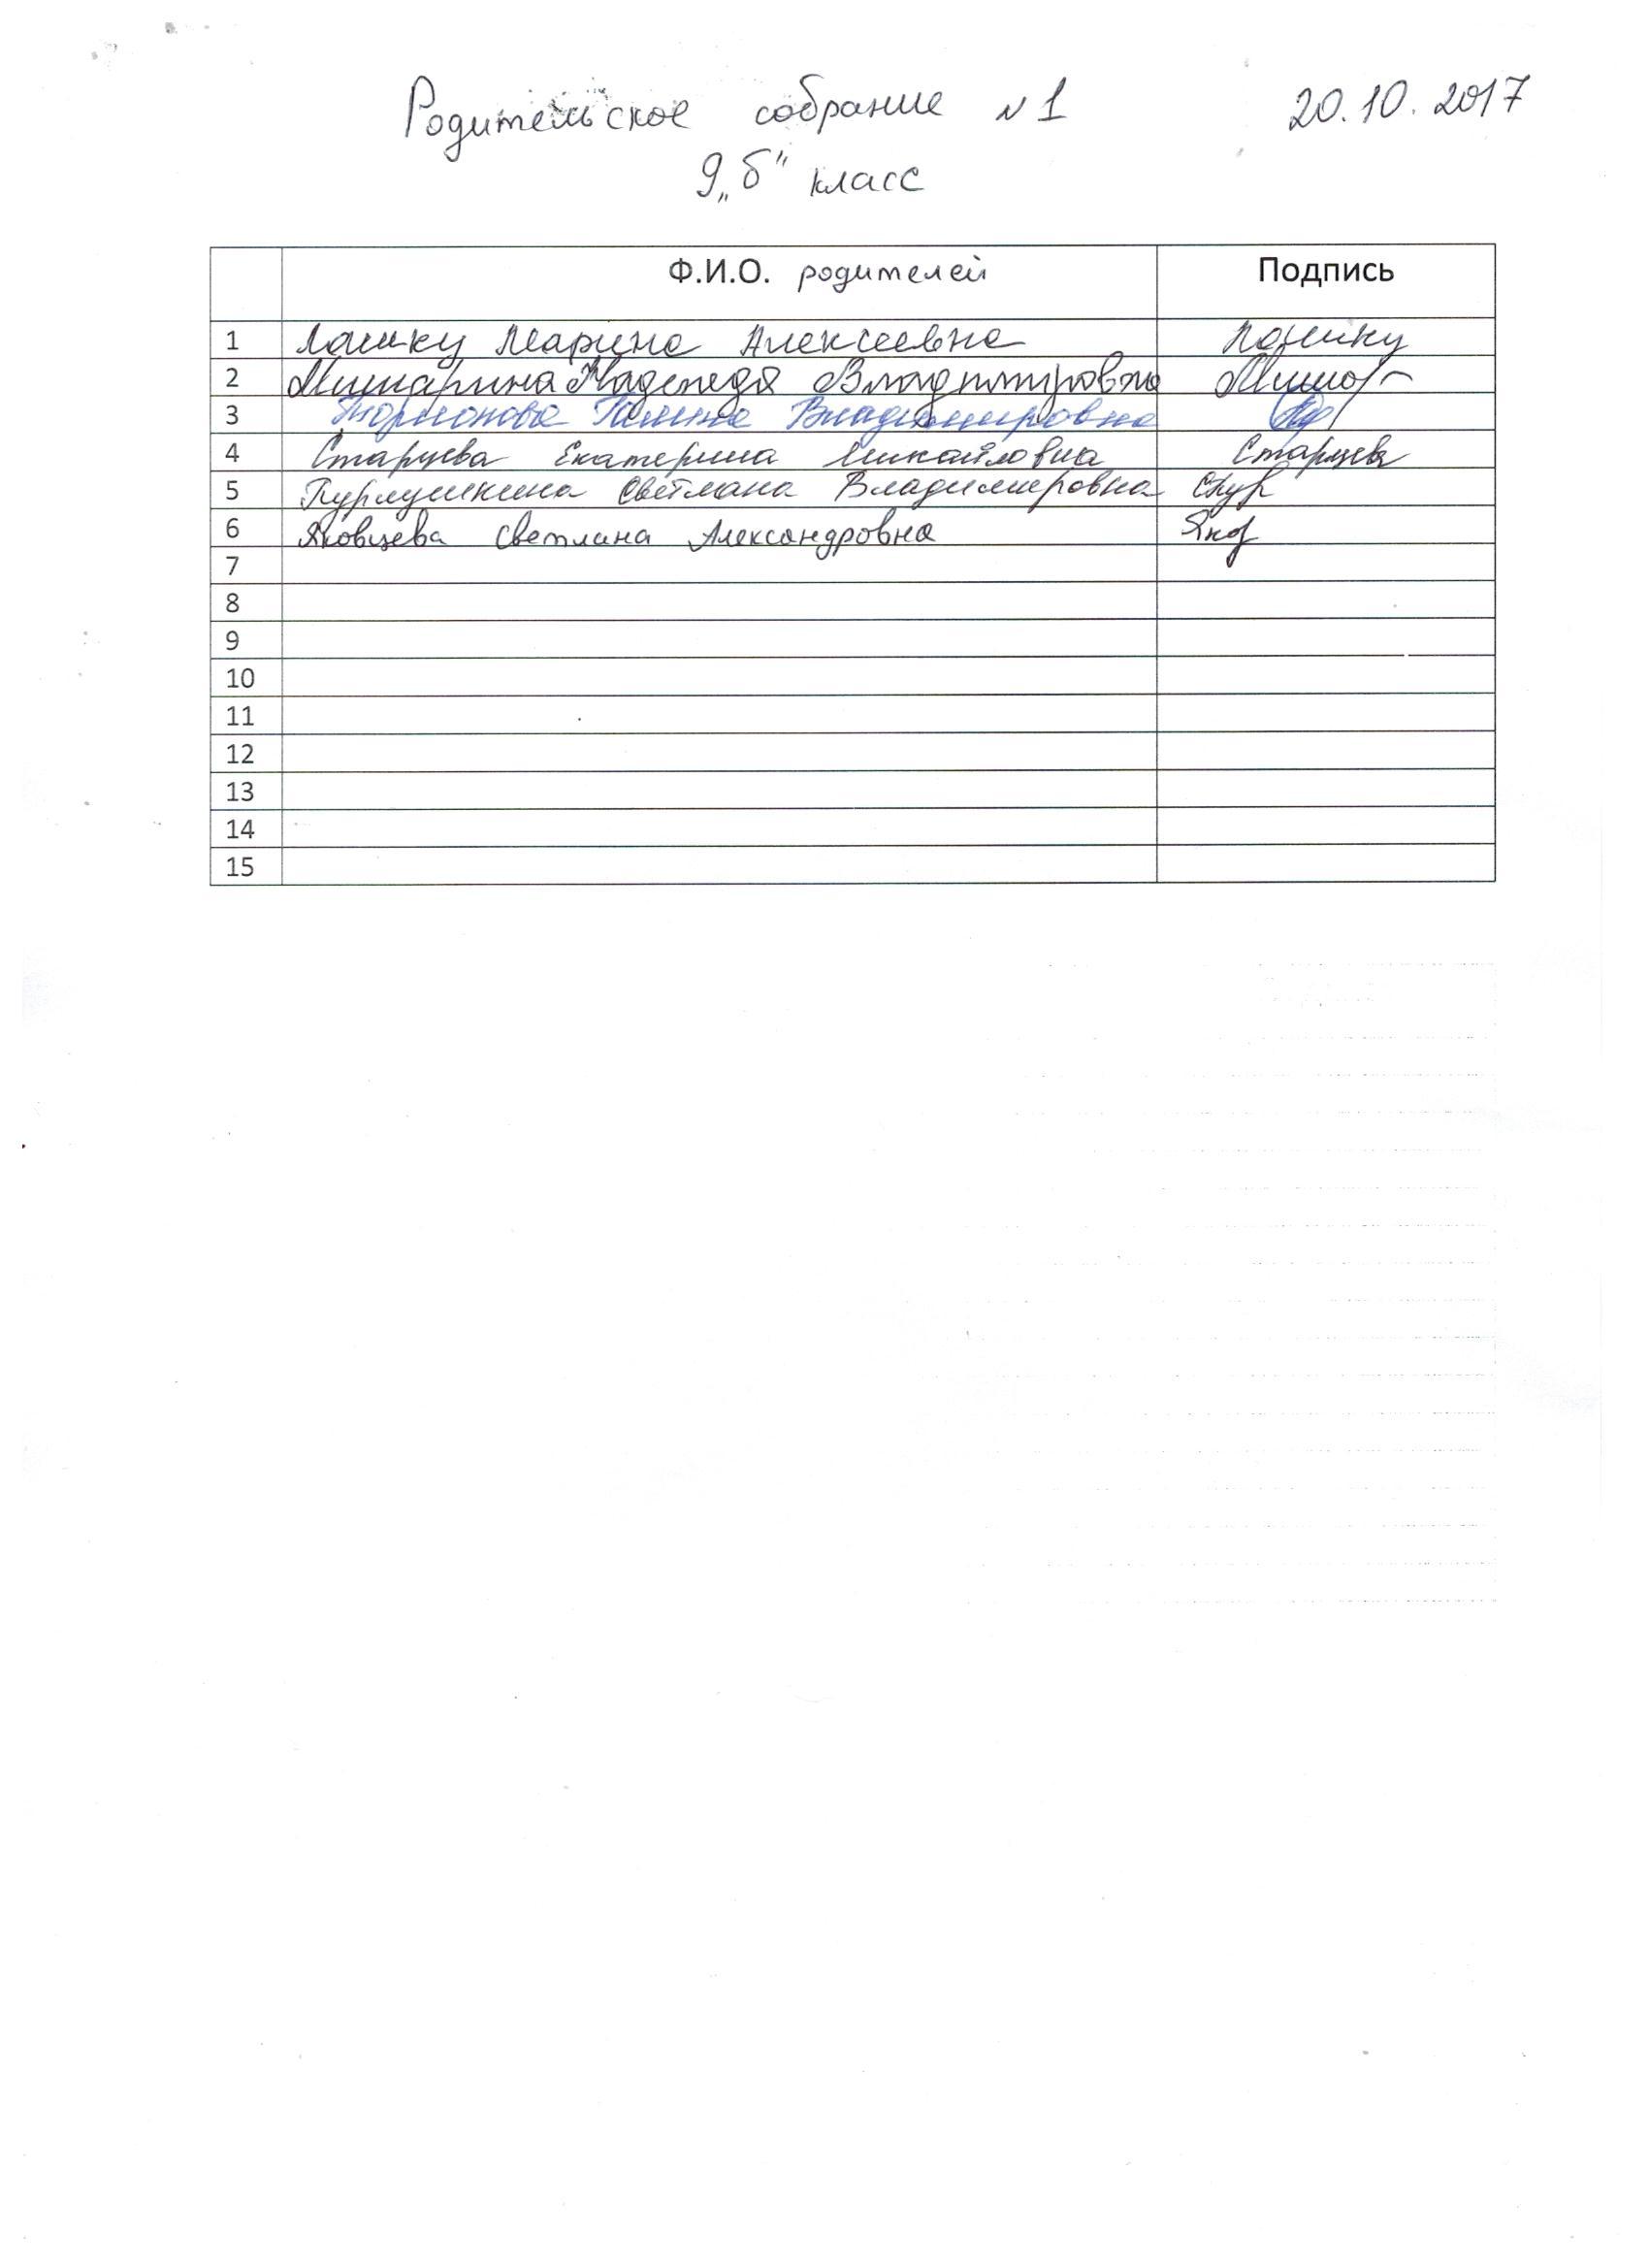 Родительское собрание №1 20.10.2017
9 „б" класс
Ф.И.О. родителей Подпись
1 Марина Алексеевна
2 Мишарина Надежда Владимировна
3 Галина Владимировна
4 Старцева Екатерина Михайловна Старцева
5 Курмушкина Светлана Владимировна
6 Яковцева Светлана Александровна Яков
7
8
9
10
11
12
13
14
15